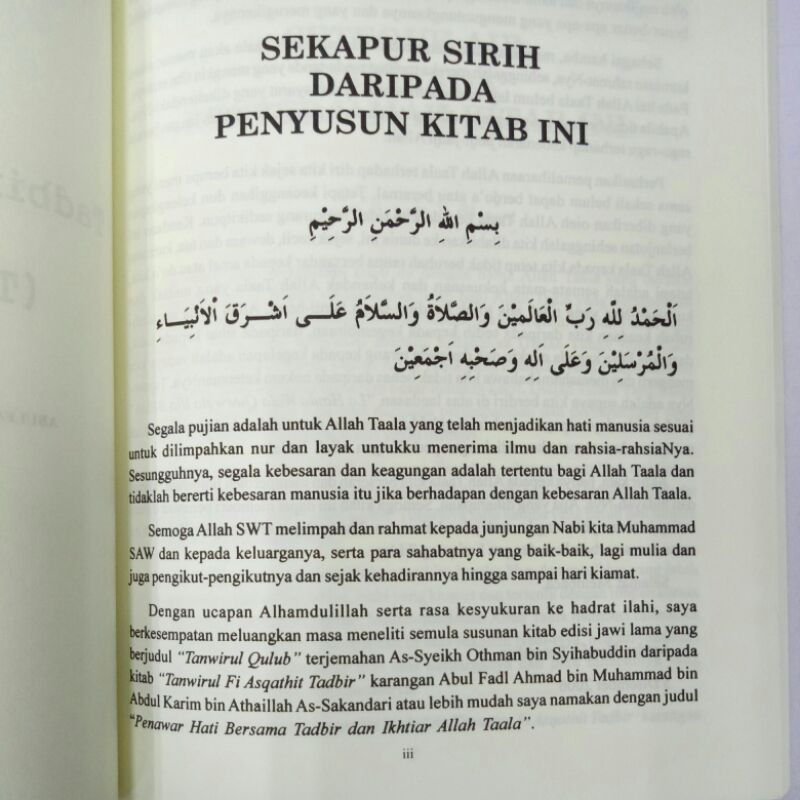 SEKAPUR SIRIH
DARIPADA
PENYUSUN KITAB INI
بِسْمِ اللهِ الرَّحْمَنِ الرَّحِيْمِ
اَلْحَمْدُ لِلّٰهِ رَبِّ الْعَالَمِيْنَ وَالصَّلاَةُ وَالسَّلاَمُ عَلَـــى اَشْـــرَقَ اْلاَنْبِيَـــاءِ
وَالْمُرْسَلِيْنَ وَعَلَى اَلِهِ وَصَحْبِهِ اَجْمَعِيْنَ
Segala pujian adalah untuk Allah Taala yang telah menjadikan hati manusia sesuai
untuk dilimpahkan nur dan layak untukku menerima ilmu dan rahsia-rahsiaNya.
Sesungguhnya, segala kebesaran dan keagungan adalah tertentu bagi Allah Taala dan
tidaklah bererti kebesaran manusia itu jika berhadapan dengan kebesaran Allah Taala.
Semoga Allah SWT melimpah dan rahmat kepada junjungan Nabi kita Muhammad
SAW dan kepada keluarganya, serta para sahabatnya yang baik-baik, lagi mulia dan
juga pengikut-pengikutnya dan sejak kehadirannya hingga sampai hari kiamat.
Dengan ucapan Alhamdulillah serta rasa kesyukuran ke hadrat ilahi, saya
berkesempatan meluangkan masa meneliti semula susunan kitab edisi jawi lama yang
berjudul "Tanwirul Qulub" terjemahan As-Syeikh Othman bin Syihabuddin daripada
kitab "Tanwirul Fi Asqathit Tadbir" karangan Abul Fadl Ahmad bin Muhammad bin
Abdul Karim bin Athaillah As-Sakandari atau lebih mudah saya namakan dengan judul
"Penawar Hati Bersama Tadbir dan Ikhtiar Allah Taala".
iii